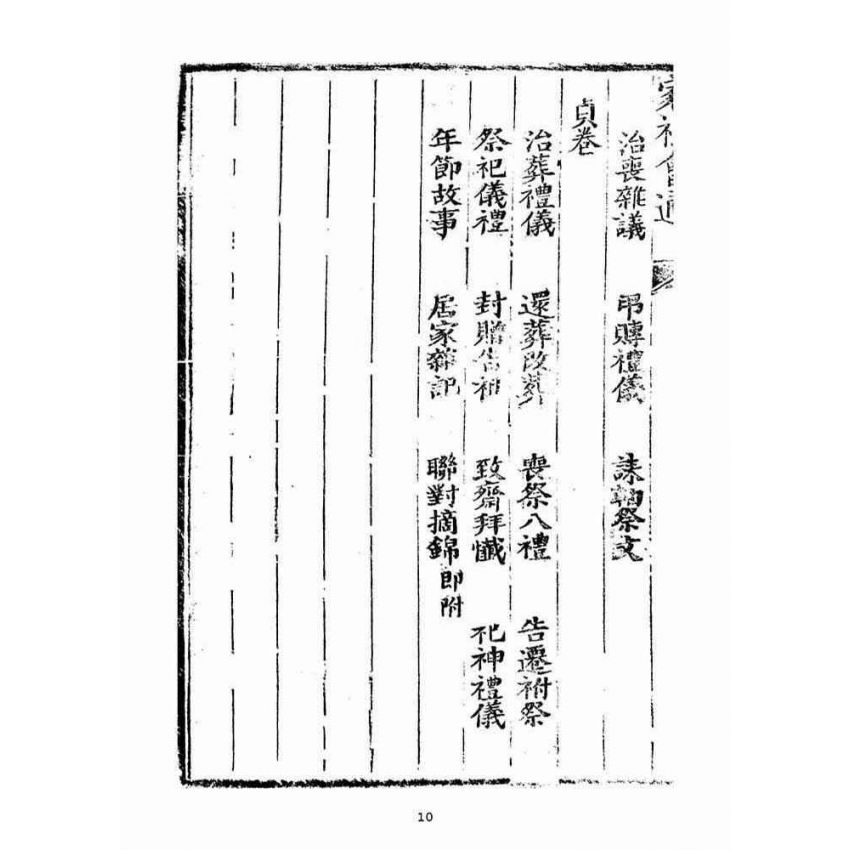 家礼會通
治喪雜議 吊賻禮儀 誄軸祭文
貞卷
治葬禮儀 還葬改葬 喪祭八禮 告遷祔祭
祭祀儀禮 封贈告神 致齋拜懺 祀神禮儀
年節故事 居家雜記 聯對摘錦即附
10